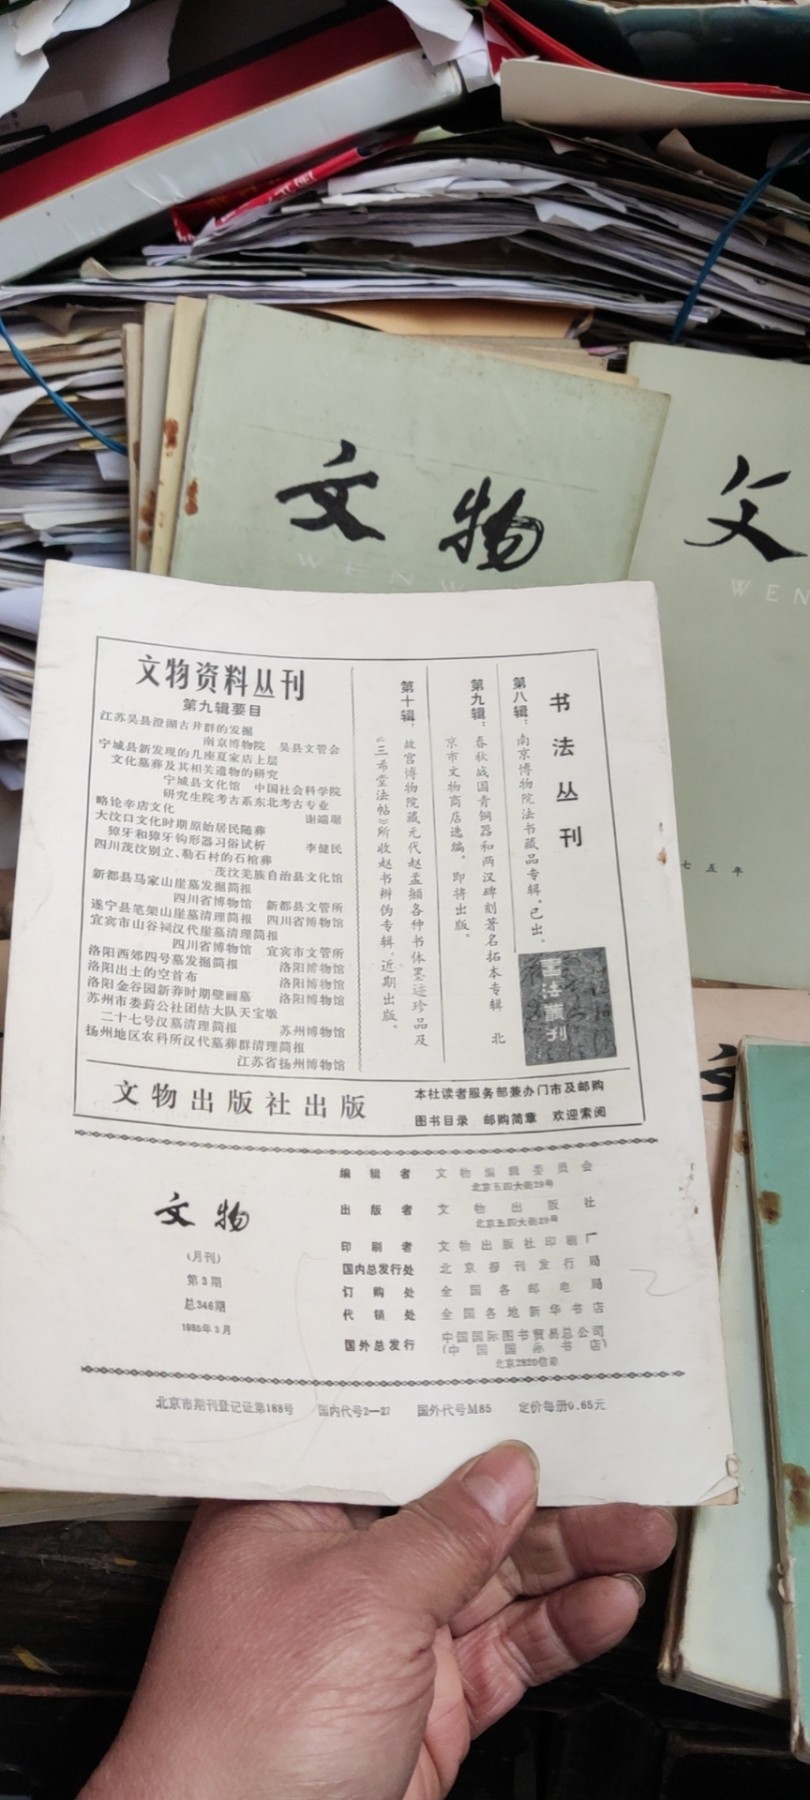 文物
WENW
文
WEN
七五年
文物资料丛刊
第九辑要目
江苏吴县澄湖古井群的发掘
南京博物院 吴县文管会
宁城县新发现的几座夏家店上层
文化墓葬及其相关遗物的研究
宁城县文化馆 中国社会科学院
研究生院考古系东北考古专业
略论辛店文化 谢端琚
大汶口文化时期原始居民随葬
獐牙和獐牙钩形器习俗试析 李健民
四川茂汶别立、勒石村的石棺葬
茂汶羌族自治县文化馆
新都县马家山崖墓发掘简报
四川省博物馆 新都县文管所
遂宁县笔架山崖墓清理简报 四川省博物馆
宜宾市山谷祠汉代崖墓清理简报
四川省博物馆 宜宾市文管所
洛阳西郊四号墓发掘简报 洛阳博物馆
洛阳出土的空首布 洛阳博物馆
洛阳金谷园新莽时期壁画墓 洛阳博物馆
苏州市娄葑公社团结大队天宝墩
二十七号汉墓清理简报 苏州博物馆
扬州地区农科所汉代墓葬群清理简报
江苏省扬州博物馆
书法丛刊
第八辑：南京博物院法书藏品专辑，已出。
第九辑：春秋战国青铜器和两汉碑刻著名拓本专辑 北
京市文物商店选编，即将出版。
第十辑：故宫博物院藏元代赵孟頫各种书体墨迹珍品及
《三希堂法帖》所收赵书辨伪专辑，近期出版。
书法丛刊
文物出版社出版
本社读者服务部兼办门市及邮购
图书目录 邮购简章 欢迎索阅
文物
（月刊）
第3期
总346期
1985年3月
编辑者 文物编辑委员会
北京五四大街29号
出版者 文物出版社
北京五四大街29号
印刷者 文物出版社印刷厂
国内总发行处 北京报刊发行局
订购处 全国各邮电局
代销处 全国各地新华书店
国外总发行 中国国际图书贸易总公司
（中国国际书店）
北京2820信箱
北京市期刊登记证第188号 国内代号2—27 国外代号M85 定价每册0.65元